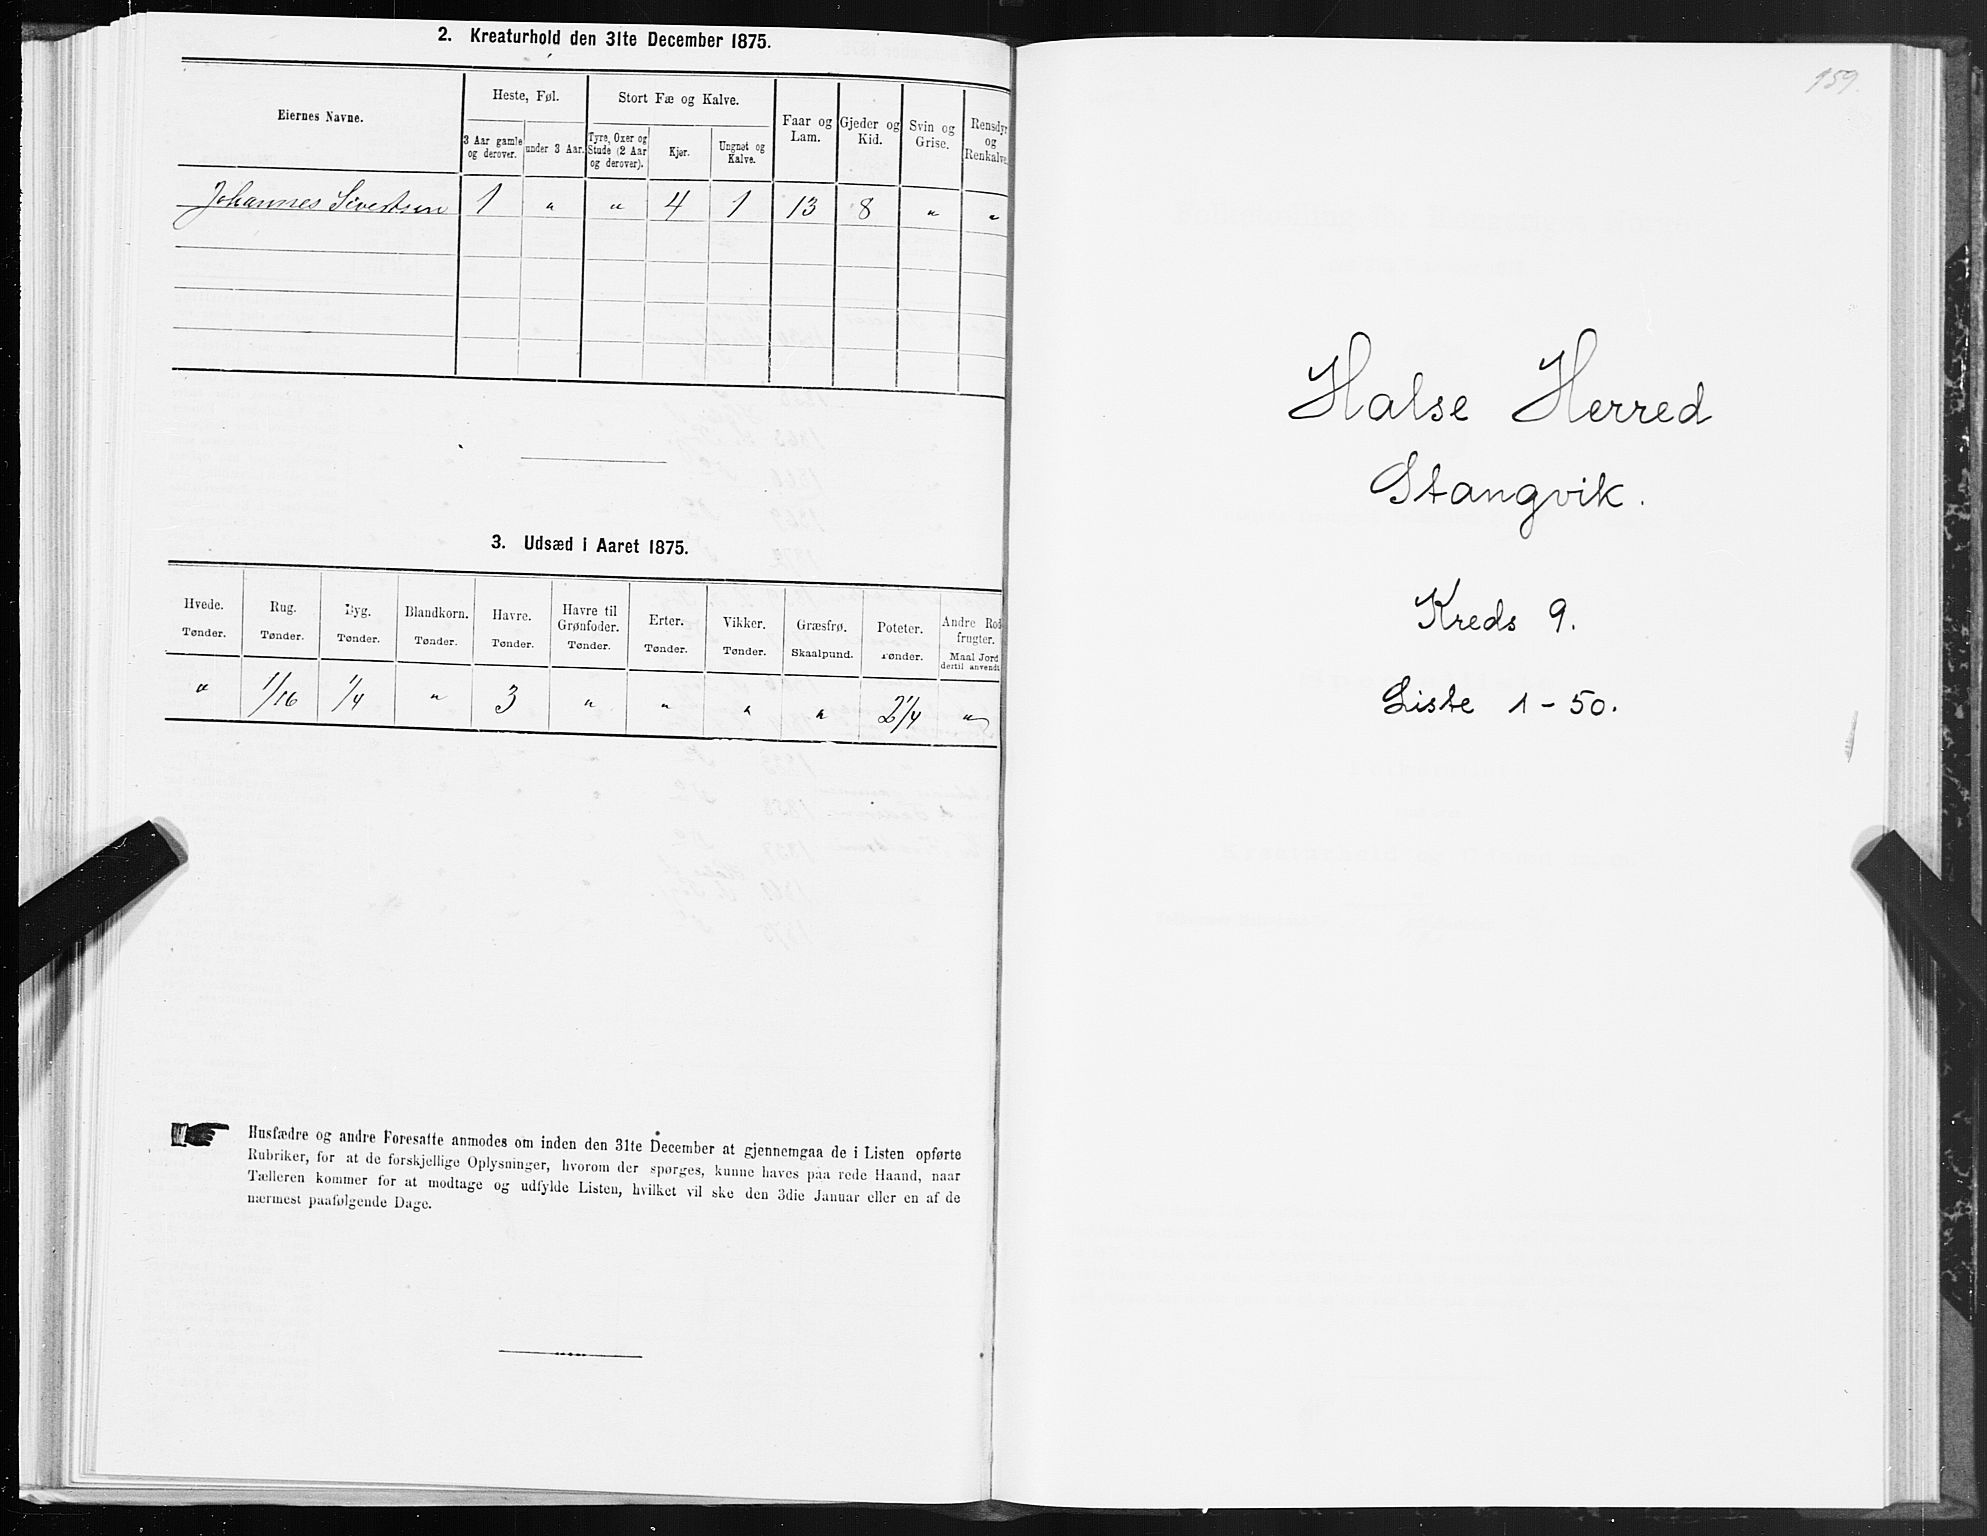 2. Kreaturhold den 31te December 1875.
Eiernes Navne. Heste, Føl. Stort Fæ og Kalve. Faar og Lam. Gjeder og Kid. Svin og Grise. Rensdyr og Renkalve.
3 Aar gamle og derover. under 3 Aar. Tyre, Oxer og Stude (2 Aar og derover). Kjør. Ungnøt og Kalve.
Johannes Sivertsen 1 " " 4 1 13 8 " "
3. Udsæd i Aaret 1875.
Hvede. Rug. Byg. Blandkorn. Havre. Havre til Grønfoder. Erter. Vikker. Græsfrø. Poteter. Andre Rodfrugter.
Tønder. Tønder. Tønder. Tønder. Tønder. Tønder. Tønder. Tønder. Skaalpund. Tønder. Maal Jord dertil anvendt
" 1/16 1/4 " 3 " " " " 2 1/4 "
Husfædre og andre Foresatte anmodes om inden den 31te December at gjennemgaa de i Listen opførte
Rubriker, for at de forskjellige Oplysninger, hvorom der spørges, kunne haves paa rede Haand, naar
Tælleren kommer for at modtage og udfylde Listen, hvilket vil ske den 3die Januar eller en af de
nærmest paafølgende Dage.
159.
Halse Herred
Stangvik.
Kreds 9.
Liste 1-50.